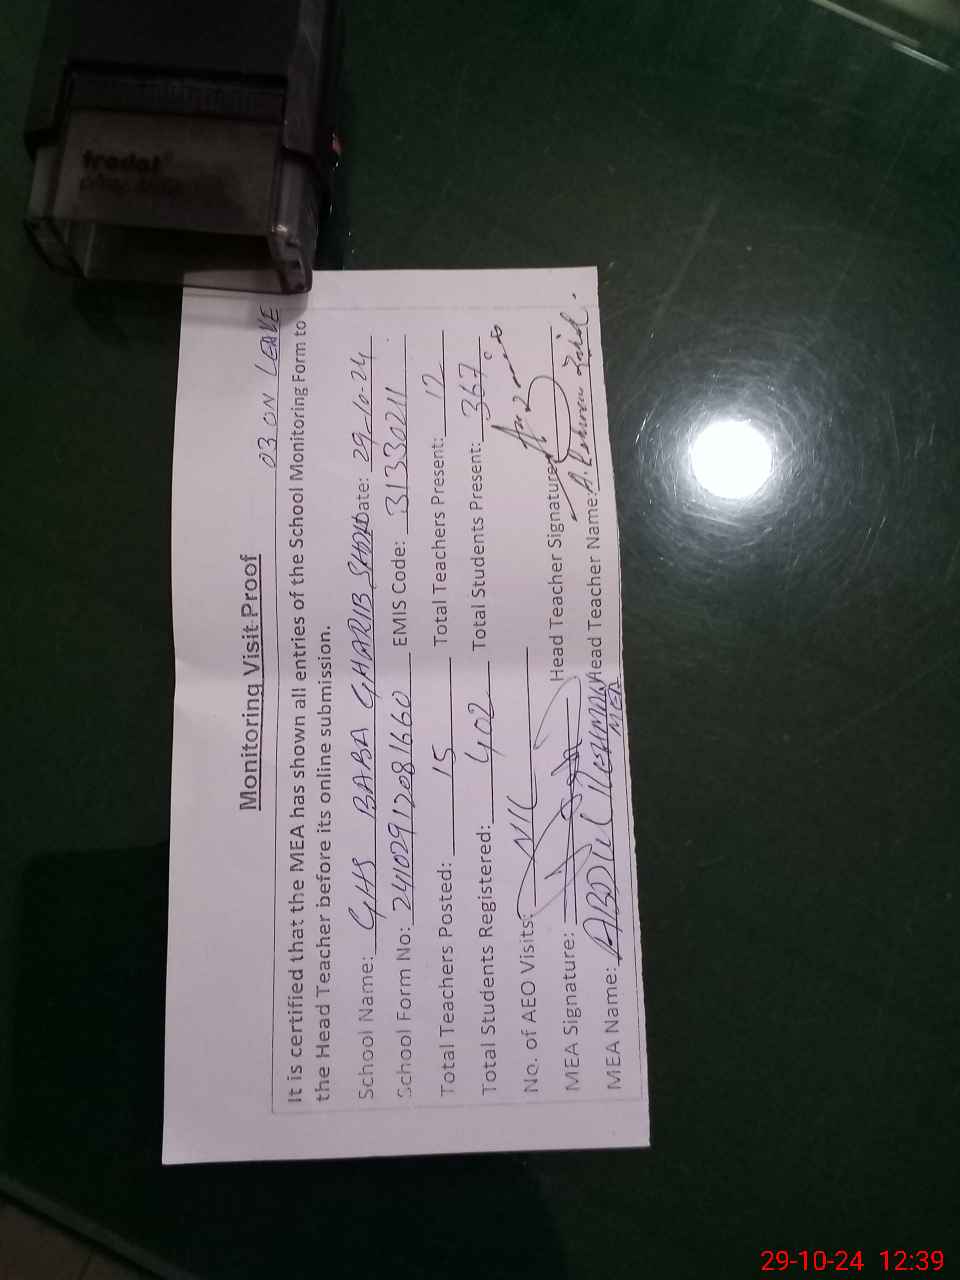 trodat
03 ON LEAVE
Monitoring Visit Proof
It is certified that the MEA has shown all entries of the School Monitoring Form to
the Head Teacher before its online submission.
School Name: GHS BABA GHARIB SHAH Date: 29-10-24
School Form No: 24102912081660 EMIS Code: 31330211
Total Teachers Posted: 15 Total Teachers Present: 12
Total Students Registered: 402 Total Students Present: 367
No. of AEO Visits: NIL
MEA Signature: Head Teacher Signature:
MEA Name: ABDUL REHMAN Head Teacher Name:
MEA
29-10-24 12:39